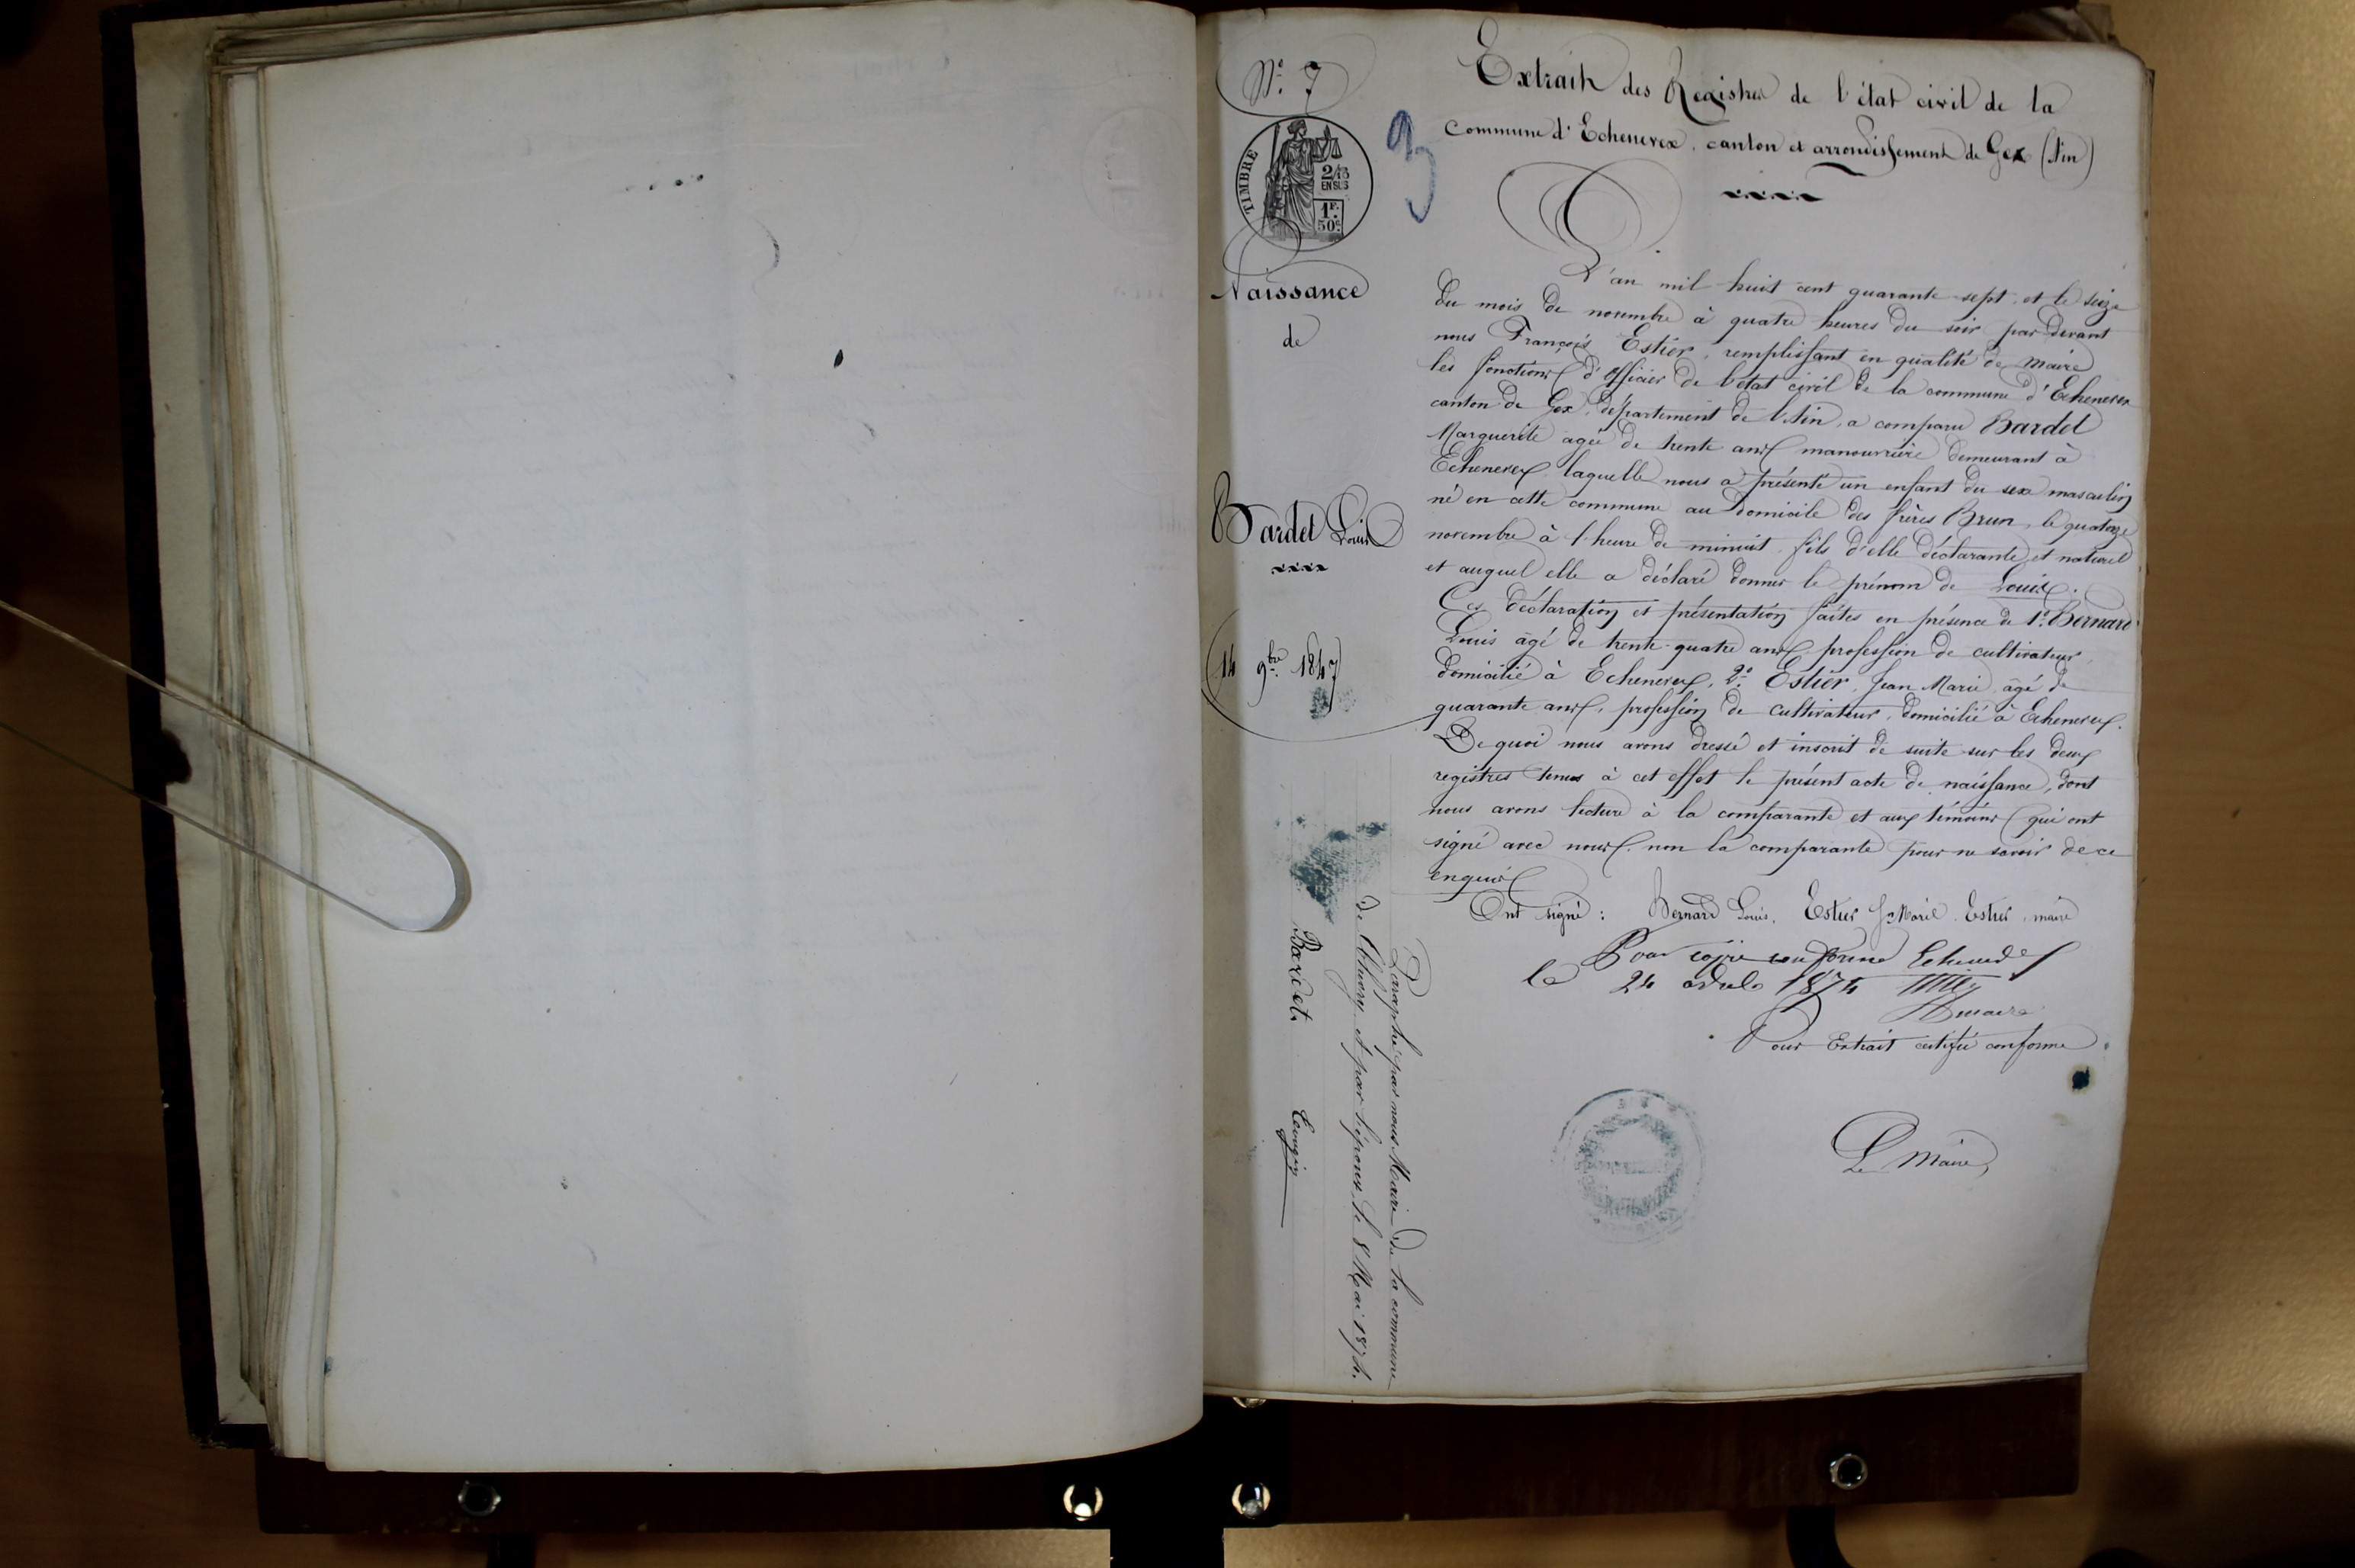 N.º 7
TIMBRE
2/10
EN SUS
1F.
50c
3
Extrait des Registres de l'état civil de la
Commune d'Echenevex, canton et arrondissement de Gex (Ain)
Naissance
de
Bardet Louis
14 9bre 1847
L'an mil huit cent quarante sept, et le seize
du mois de novembre à quatre heures du soir par devant
nous François Estier, remplissant en qualité de maire
les fonctions d'officier de l'état civil de la commune d'Echenevex
canton de Gex, département de l'Ain, a comparu Bardet
Marguerite agée de trente ans manouvrière demeurant à
Echenevex laquelle nous a présenté un enfant du sexe masculin
né en cette commune au domicile des frères Brun, le quatorze
novembre à l'heure de minuit, fils d'elle déclarante et naturel
et auquel elle a déclaré donner le prénom de Louis.
Ces déclaration et présentation faites en présence de 1º Bernard
Louis âgé de trente-quatre ans profession de cultivateur,
domicilié à Echenevex, 2º Estier, Jean Marie, âgé de
quarante ans, profession de cultivateur, domicilié à Echenevex.
De quoi nous avons dressé et inscrit de suite sur les deux
registres tenus à cet effet le présent acte de naissance, dont
nous avons lecture à la comparante et aux témoins qui ont
signé avec nous, non la comparante pour ne savoir de ce
enquis
Ont signé : Bernard Louis, Estier Jn Marie Estier, maire
Pour copie conforme
le 24 1874
Pour Extrait certifié conforme
Le Maire,
Paraphé par nous Maire de la commune
de et par l'époux, le 8 Mai 1874.
Bardet